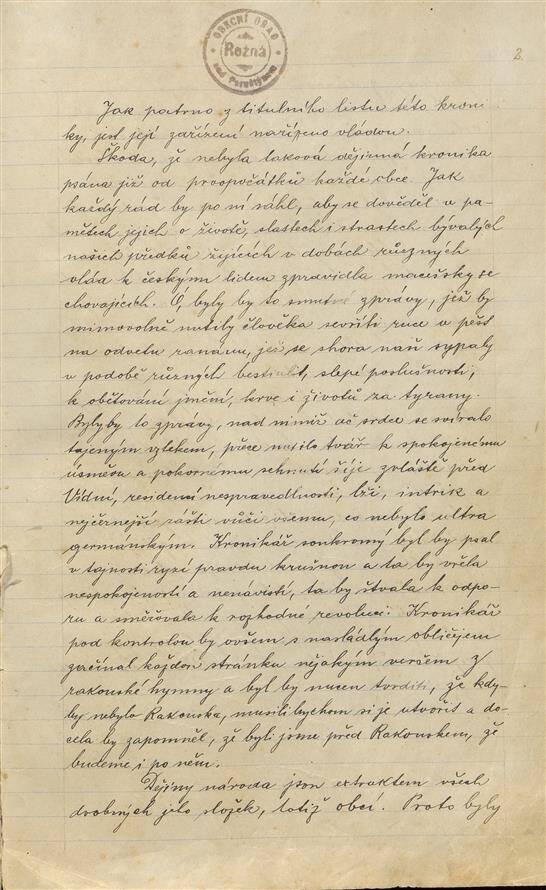 OBECNÍ ÚŘAD
Rožná
nad Pernštýnem
2.
Jak patrno z titulního listu této kroni
ky, jest její zařízení nařízeno vládou.
Škoda, že nebyla taková dějinná kronika
psána již od prvopočátků každé obce. Jak
každý rád by po ní sáhl, aby se dověděl v pa-
mětech jejich o životě, slastech i strastech bývalých
našich předků žijících v dobách různých
vlád k českým lidem zpravidla macešsky se
chovajících. Ó, byly by to smutné zprávy, jež by
mimovolně nutily člověka sevříti ruce v pěst
na odvetu ranám, jež se shora naň sypaly
v podobě různých bestialit, slepé poslušnosti,
k obětování jmění, krve i životů za tyrany.
Byly by to zprávy, nad nimiž ač srdce se svíralo
tajeným vztekem, přece nutilo tvář k spokojenému
úsměvu a pokornému sehnutí šíje zvláště před
Vídní, residencí nespravedlnosti, lži, intrik a
nejčernější zášti vůči všemu, co nebylo ultra
germánským. Kronikář soukromý byl by psal
v tajnosti ryzí pravdu krušnou a ta by vřela
nespokojeností a nenávistí, ta by štvala k odpo-
ru a směřovala k rozhodné revoluci. Kronikář
pod kontrolou by ovšem s nasládlým obličejem
začínal každou stránku nějakým veršem z
rakouské hymny a byl by nucen tvrditi, že kdy-
by nebylo Rakouska, musili bychom si je utvořit a do-
cela by zapomněl, že byli jsme před Rakouskem, že
budeme i po něm.
Dějiny národa jsou extraktem všech
drobných jeho složek, totiž obcí. Proto byly